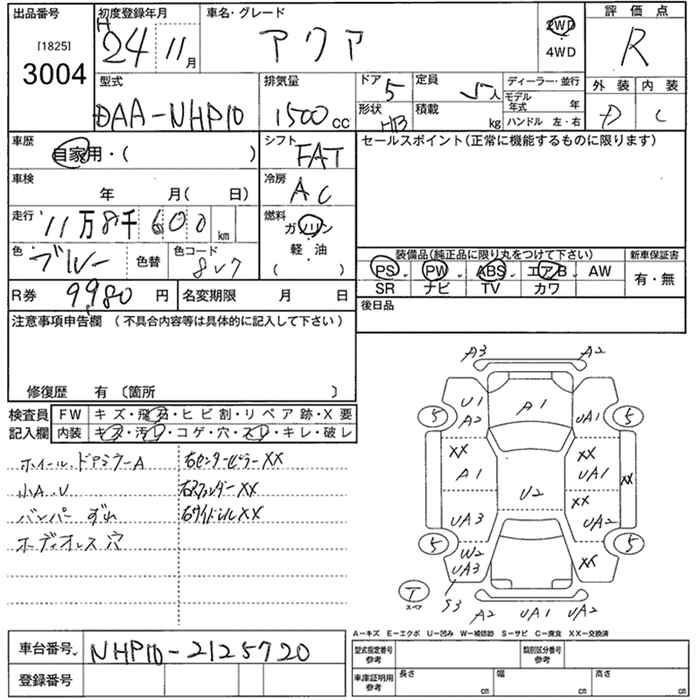 出品番号 初度登録年月 車名・グレード 2WD 評価点
[1825] H 24 11月 アクア 4WD R
3004
型式 排気量 ドア 5 定員 5人 ディーラー・並行 外装 内装
DAA-NHP10 1500cc 形状 HB 積載 kg モデル年式 年 D C
ハンドル 左・右
車歴 シフト セールスポイント(正常に機能するものに限ります)
自家用・( ) FAT
車検 年 月( 日) 冷房 AC
走行 11万8千600km 燃料 ガソリン
軽・油
( )
色 ブルー 色替 色コード 8V7
装備品(純正品に限り丸をつけて下さい) 新車保証書
PS PW ABS エアB AW 有・無
SR ナビ TV カワ
R券 9980円 名変期限 月 日 後日品
注意事項申告欄 (不具合内容等は具体的に記入して下さい)
修復歴 有 〔箇所 〕
検査員 FW キズ・飛石・ヒビ割・リペア跡・X要
記入欄 内装 キズ・汚レ・コゲ・穴・スレ・キレ・破レ
ホイール、ドアミラーA 右センターピラーXX
小A、U XX
バンパー ずれ XX
ボディオレス穴
A3 A2
U1 A2 A1 UA1
5 5
XX A1 XX UA1 XX
U2
UA3 XX UA2
5 5
W2 UA3 XX
S3
T スペア
A2 UA1 UA2
A-キズ E-エクボ U-凹み W-補修跡 S-サビ C-腐食 XX-交換済
車台番号 NHP10-2125720
登録番号
型式指定番号 参考 類別区分番号 参考
車庫証明用 参考 長さ cm 幅 cm 高さ cm